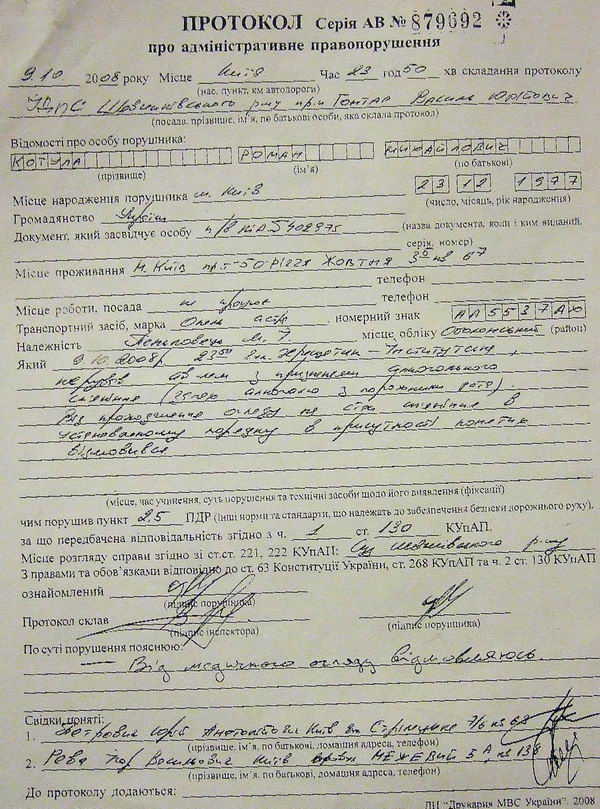 ПРОТОКОЛ Серія АВ № 879692
про адміністративне правопорушення
9.10 2008 року Місце Київ Час 23 год 50 хв складання протоколу
(нас. пункт, км автодороги)
ДПС Шевченківського р-ну Гонтар Василь Юрійович
(посада, прізвище, ім'я, по батькові особи, яка склала протокол)
Відомості про особу порушника:
КОТУЛА РОМАН МИХАЙЛОВИЧ
(прізвище) (ім'я) (по батькові)
23 12 1977
Місце народження порушника м. Київ (число, місяць, рік народження)
Громадянство
Документ, який засвідчує особу (назва документа, коли і ким виданий,
серія, номер)
Місце проживання м. Київ пр-т 50 річчя Жовтня
телефон
Місце роботи, посада не працює телефон
Транспортний засіб, марка Опель астра, номерний знак
Належність місце обліку Оболонський (район)
Який 9.10.2008р Хрещатик – Інститутська,
керував а/з з признаками алкогольного
сп'яніння (запах алкоголю з порожнини рота).
Від проходження огляду на стан сп'яніння в
установленому порядку в присутності понятих
відмовився
(місце, час учинення, суть порушення та технічні засоби щодо його виявлення (фіксації)
чим порушив пункт 2,5 ПДР (інші норми та стандарти, що належать до забезпечення безпеки дорожнього руху),
за що передбачена відповідальність згідно з ч. 1 ст. 130 КУпАП.
Місце розгляду справи згідно зі ст.ст. 221, 222 КУпАП: Суд р-ну
З правами та обов'язками відповідно до ст. 63 Конституції України, ст. 268 КУпАП та ч. 2 ст. 130 КУпАП
ознайомлений
(підпис порушника)
Протокол склав
(підпис інспектора) (підпис порушника)
По суті порушення пояснюю:
Від медичного огляду відмовляюсь.
Свідки, поняті:
1. Петрович Юрій Київ
(прізвище, ім'я, по батькові, домашня адреса, телефон)
2. Ігор Васильович Київ МЕЖЕВИЙ 5
(прізвище, ім'я, по батькові, домашня адреса, телефон)
До протоколу додаються:
ДП "Друкарня МВС України". 2008